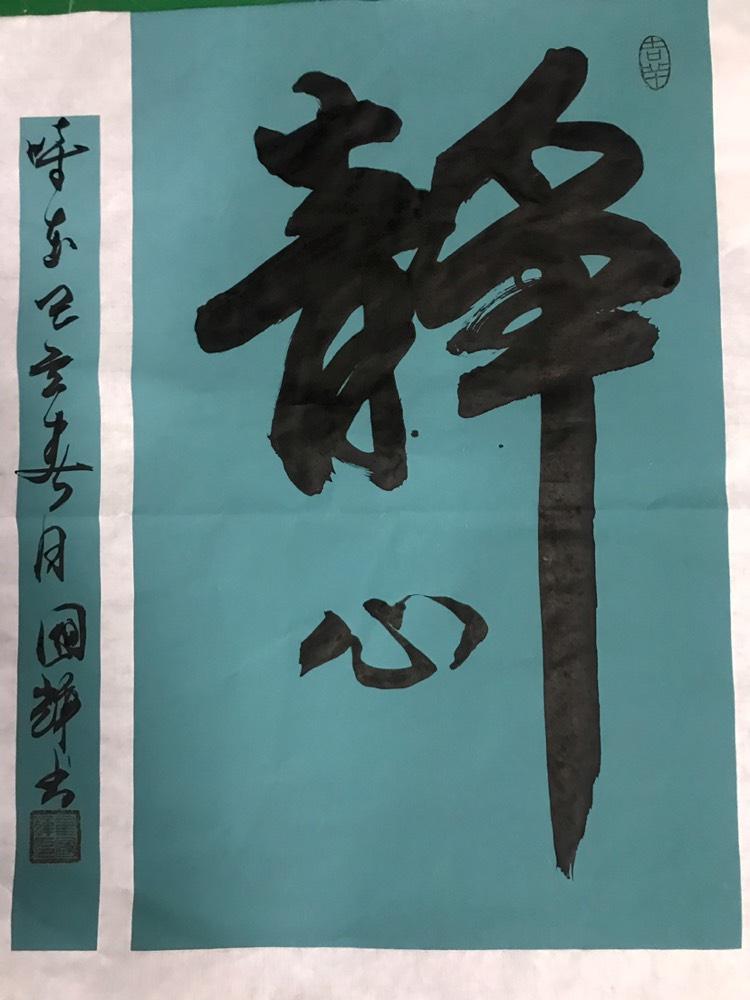 靜心
時在己亥春月國輝书
吉祥